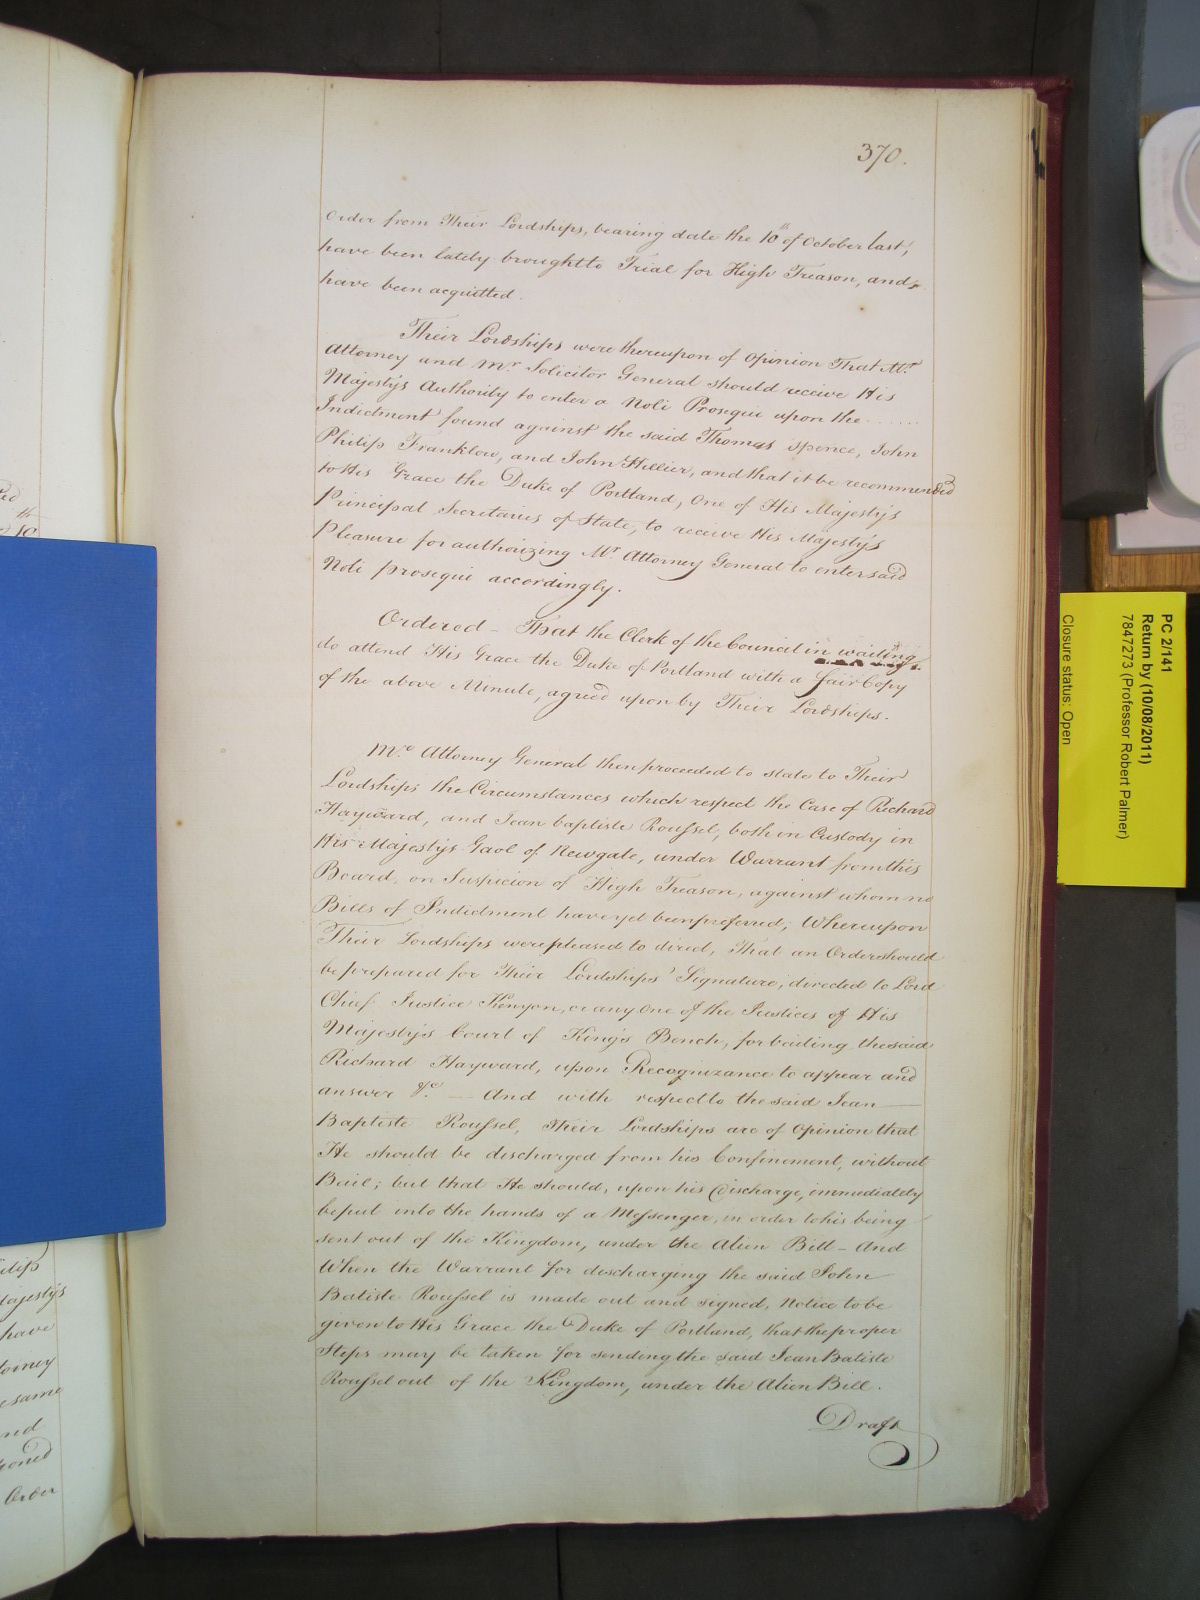 370.
Order from Their Lordships, bearing date the 10th of October last,
have been lately brought to Trial for High Treason, and
have been acquitted.
Their Lordships were thereupon of Opinion That Mr.
Attorney and Mr. Solicitor General should receive His
Majesty's Authority to enter a Noli Prosequi upon the......
Indictment found against the said Thomas Spence, John
Philip Franklow, and John Hillier, and that it be recommended
to His Grace the Duke of Portland, One of His Majesty's
Principal Secretaries of State, to receive His Majesty's
Pleasure for authorizing Mr. Attorney General to enter said
Noli prosequi accordingly.
Ordered - That the Clerk of the Council in waiting
do attend His Grace the Duke of Portland with a fair Copy
of the above Minute, agreed upon by Their Lordships.
Mr. Attorney General then proceeded to state to Their
Lordships the Circumstances which respect the Case of Richard
Hayward, and Jean baptiste Roussel, both in Custody in
His Majesty's Gaol of Newgate, under Warrant from this
Board, on Suspicion of High Treason, against whom no
Bills of Indictment have yet been preferred; Whereupon
Their Lordships were pleased to direct, That an Order should
be prepared for Their Lordships' Signature, directed to Lord
Chief Justice Kenyon, or any One of the Justices of His
Majesty's Court of King's Bench, for bailing the said
Richard Hayward, upon Recognizance to appear and
answer &c. — And with respect to the said Jean —
Baptiste Roussel, Their Lordships are of Opinion that
He should be discharged from his Confinement, without
Bail; but that He should, upon his Discharge, immediately
be put into the hands of a Messenger, in order to his being
sent out of the Kingdom, under the Alien Bill - And
When the Warrant for discharging the said John
Batiste Roussel is made out and signed, Notice to be
given to His Grace the Duke of Portland, that the proper
Steps may be taken for sending the said Jean Batiste
Roussel out of the Kingdom, under the Alien Bill.
Draft
PC 2/141
Return by (10/08/2011)
7847273 (Professor Robert Palmer)
Closure status: Open
have
same
Order